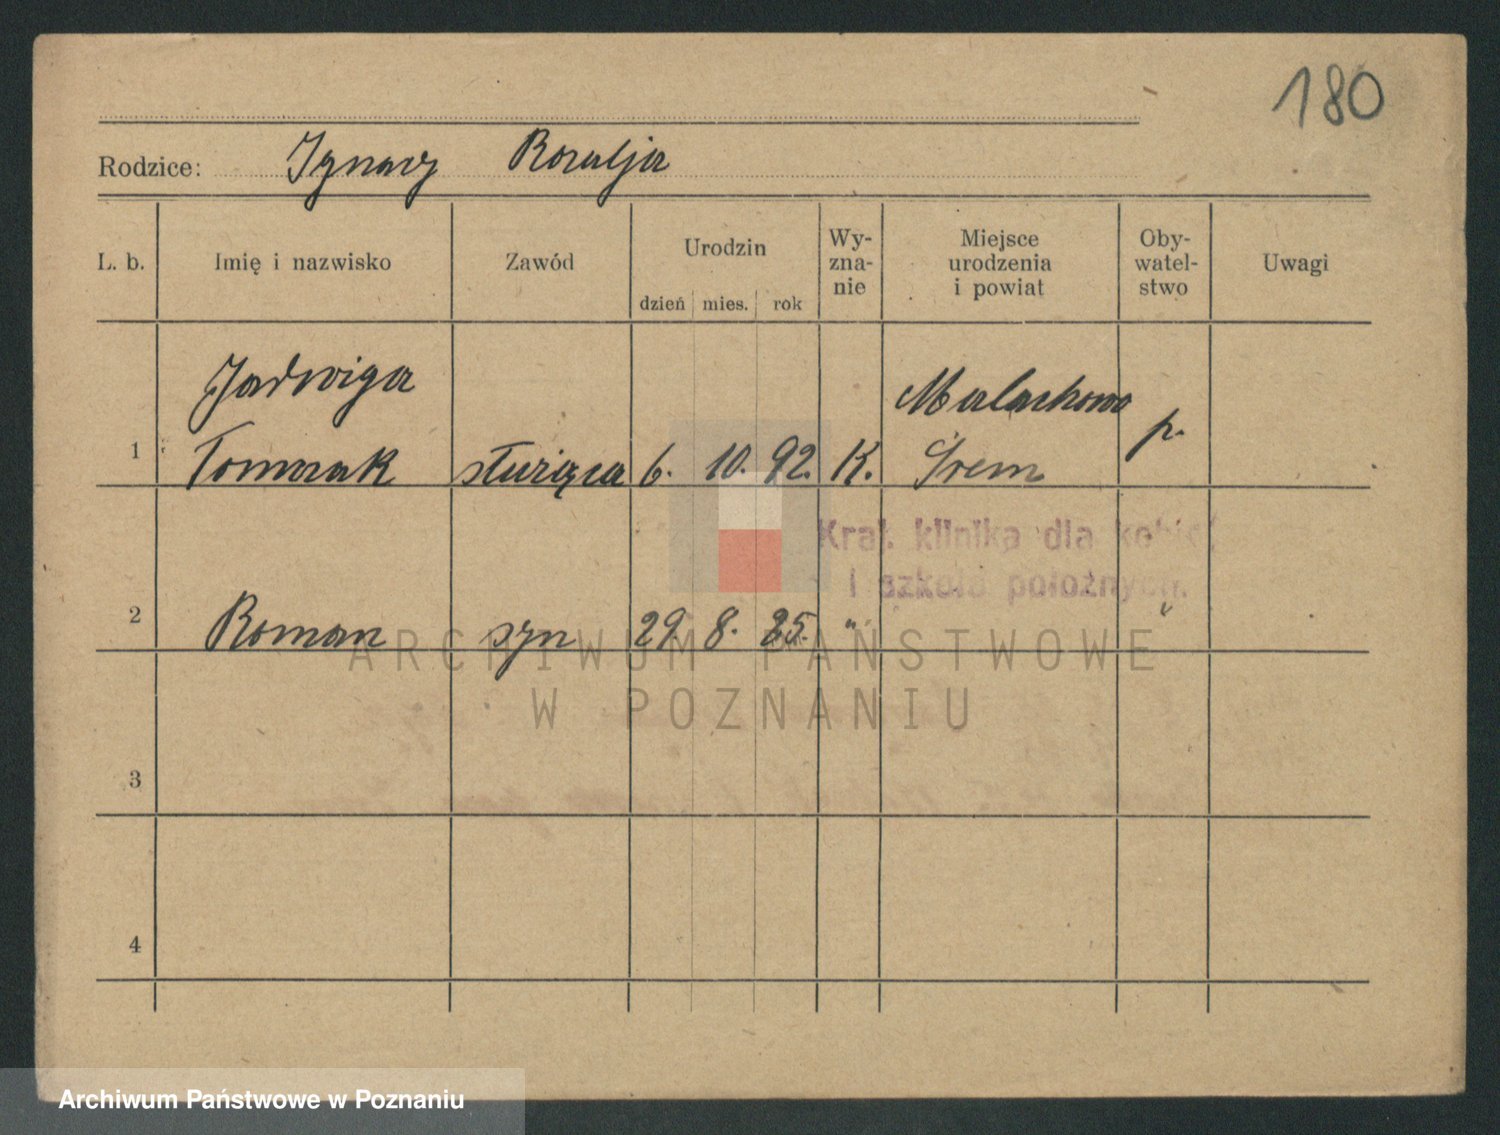 180
Rodzice: Ignacy Rozalja
L. b. Imię i nazwisko Zawód Urodzin dzień mies. rok Wy-zna-nie Miejsce urodzenia i powiat Oby-watel-stwo Uwagi
Jadwiga Małachowo
1 Tomczak służąca 6. 10. 92. K. Śrem p.
Kraj. klinika dla kobiet
i szkoła położnych.
2 Roman syn 29. 8. 25. " "
ARCHIWUM PAŃSTWOWE
W POZNANIU
3
4
Archiwum Państwowe w Poznaniu